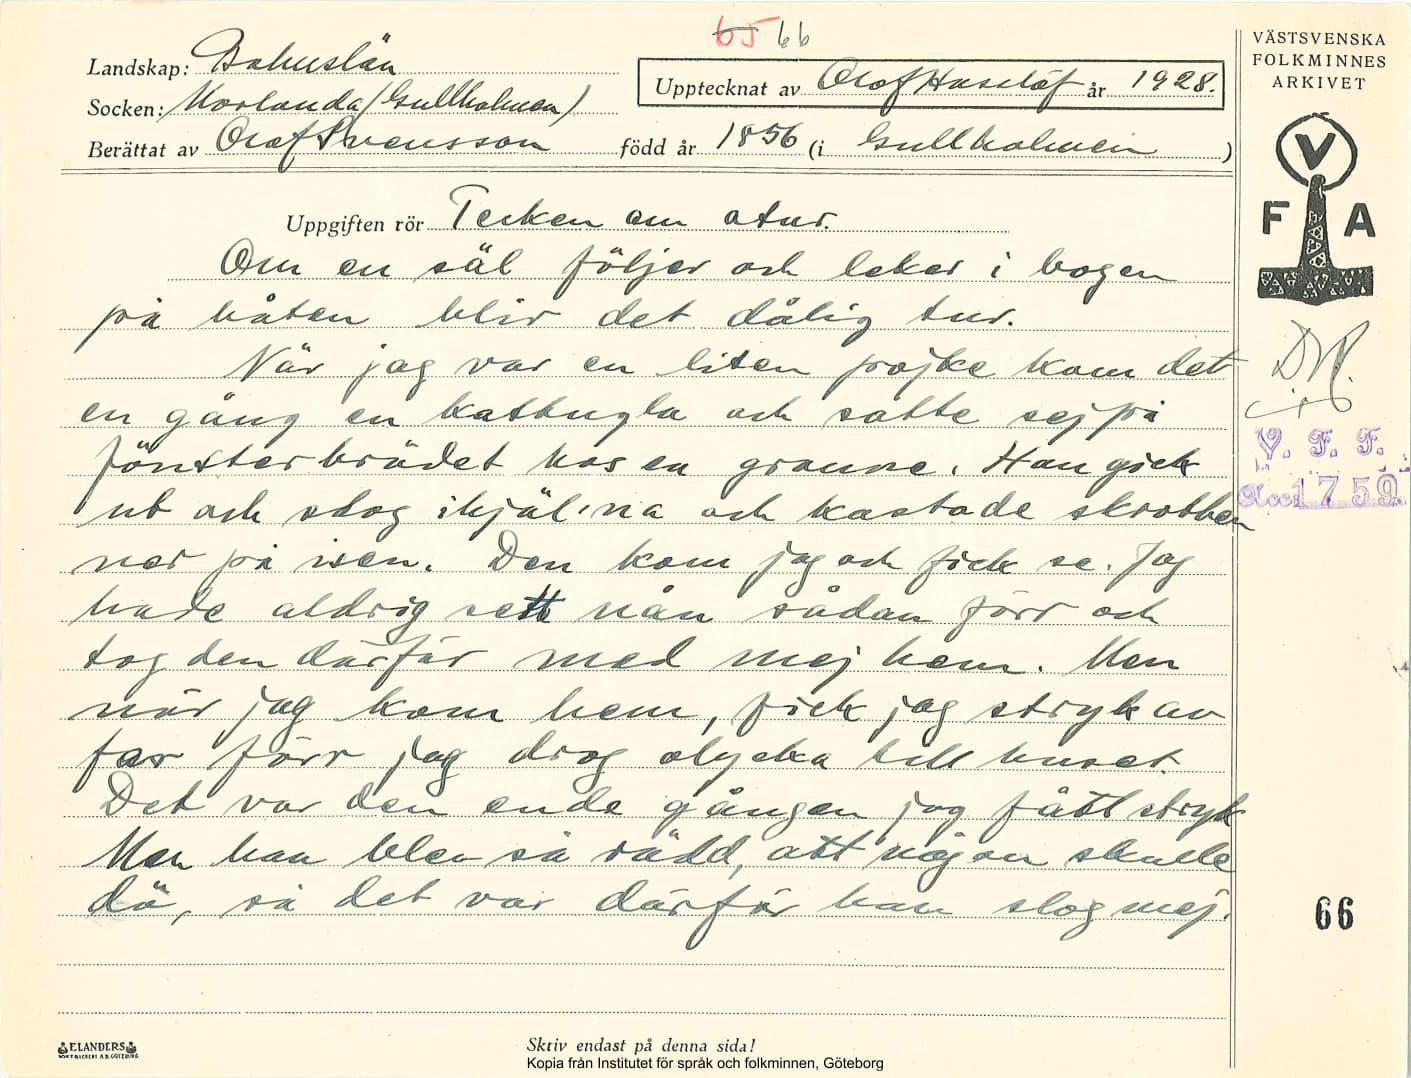 65 66
VÄSTSVENSKA
FOLKMINNES
ARKIVET
Landskap: Bohuslän
Upptecknat av Olof Hasslöf år 1928.
Socken: Morlanda (Gullholmen)
Berättat av Olof Svensson född år 1856 (i Gullholmen)
V
F A
Uppgiften rör Tecken om otur.
Om en säl följer och leker i bogen
på båten blir det dålig tur.
När jag var en liten pojke kom det
en gång en kattugla och satte sej på
fönsterbrädet hos en granne. Han gick
ut och slog ihjäl'na och kastade skrotten
ner på isen. Den kom jag och fick se. Jag
hade aldrig sett nån sådan förr och
tog den därför med mej hem. Men
när jag kom hem, fick jag stryk av
far förr jag drog olycka till huset.
Det var den enda gången jag fått stryk
Men han blev så rädd, att någon skulle
dö, så det var därför han slog mej.
V. F. F.
Acc. 1759.
66
ELANDERS
BOKTRYCKERI A.B. GÖTEBORG
Skriv endast på denna sida!
Kopia från Institutet för språk och folkminnen, Göteborg